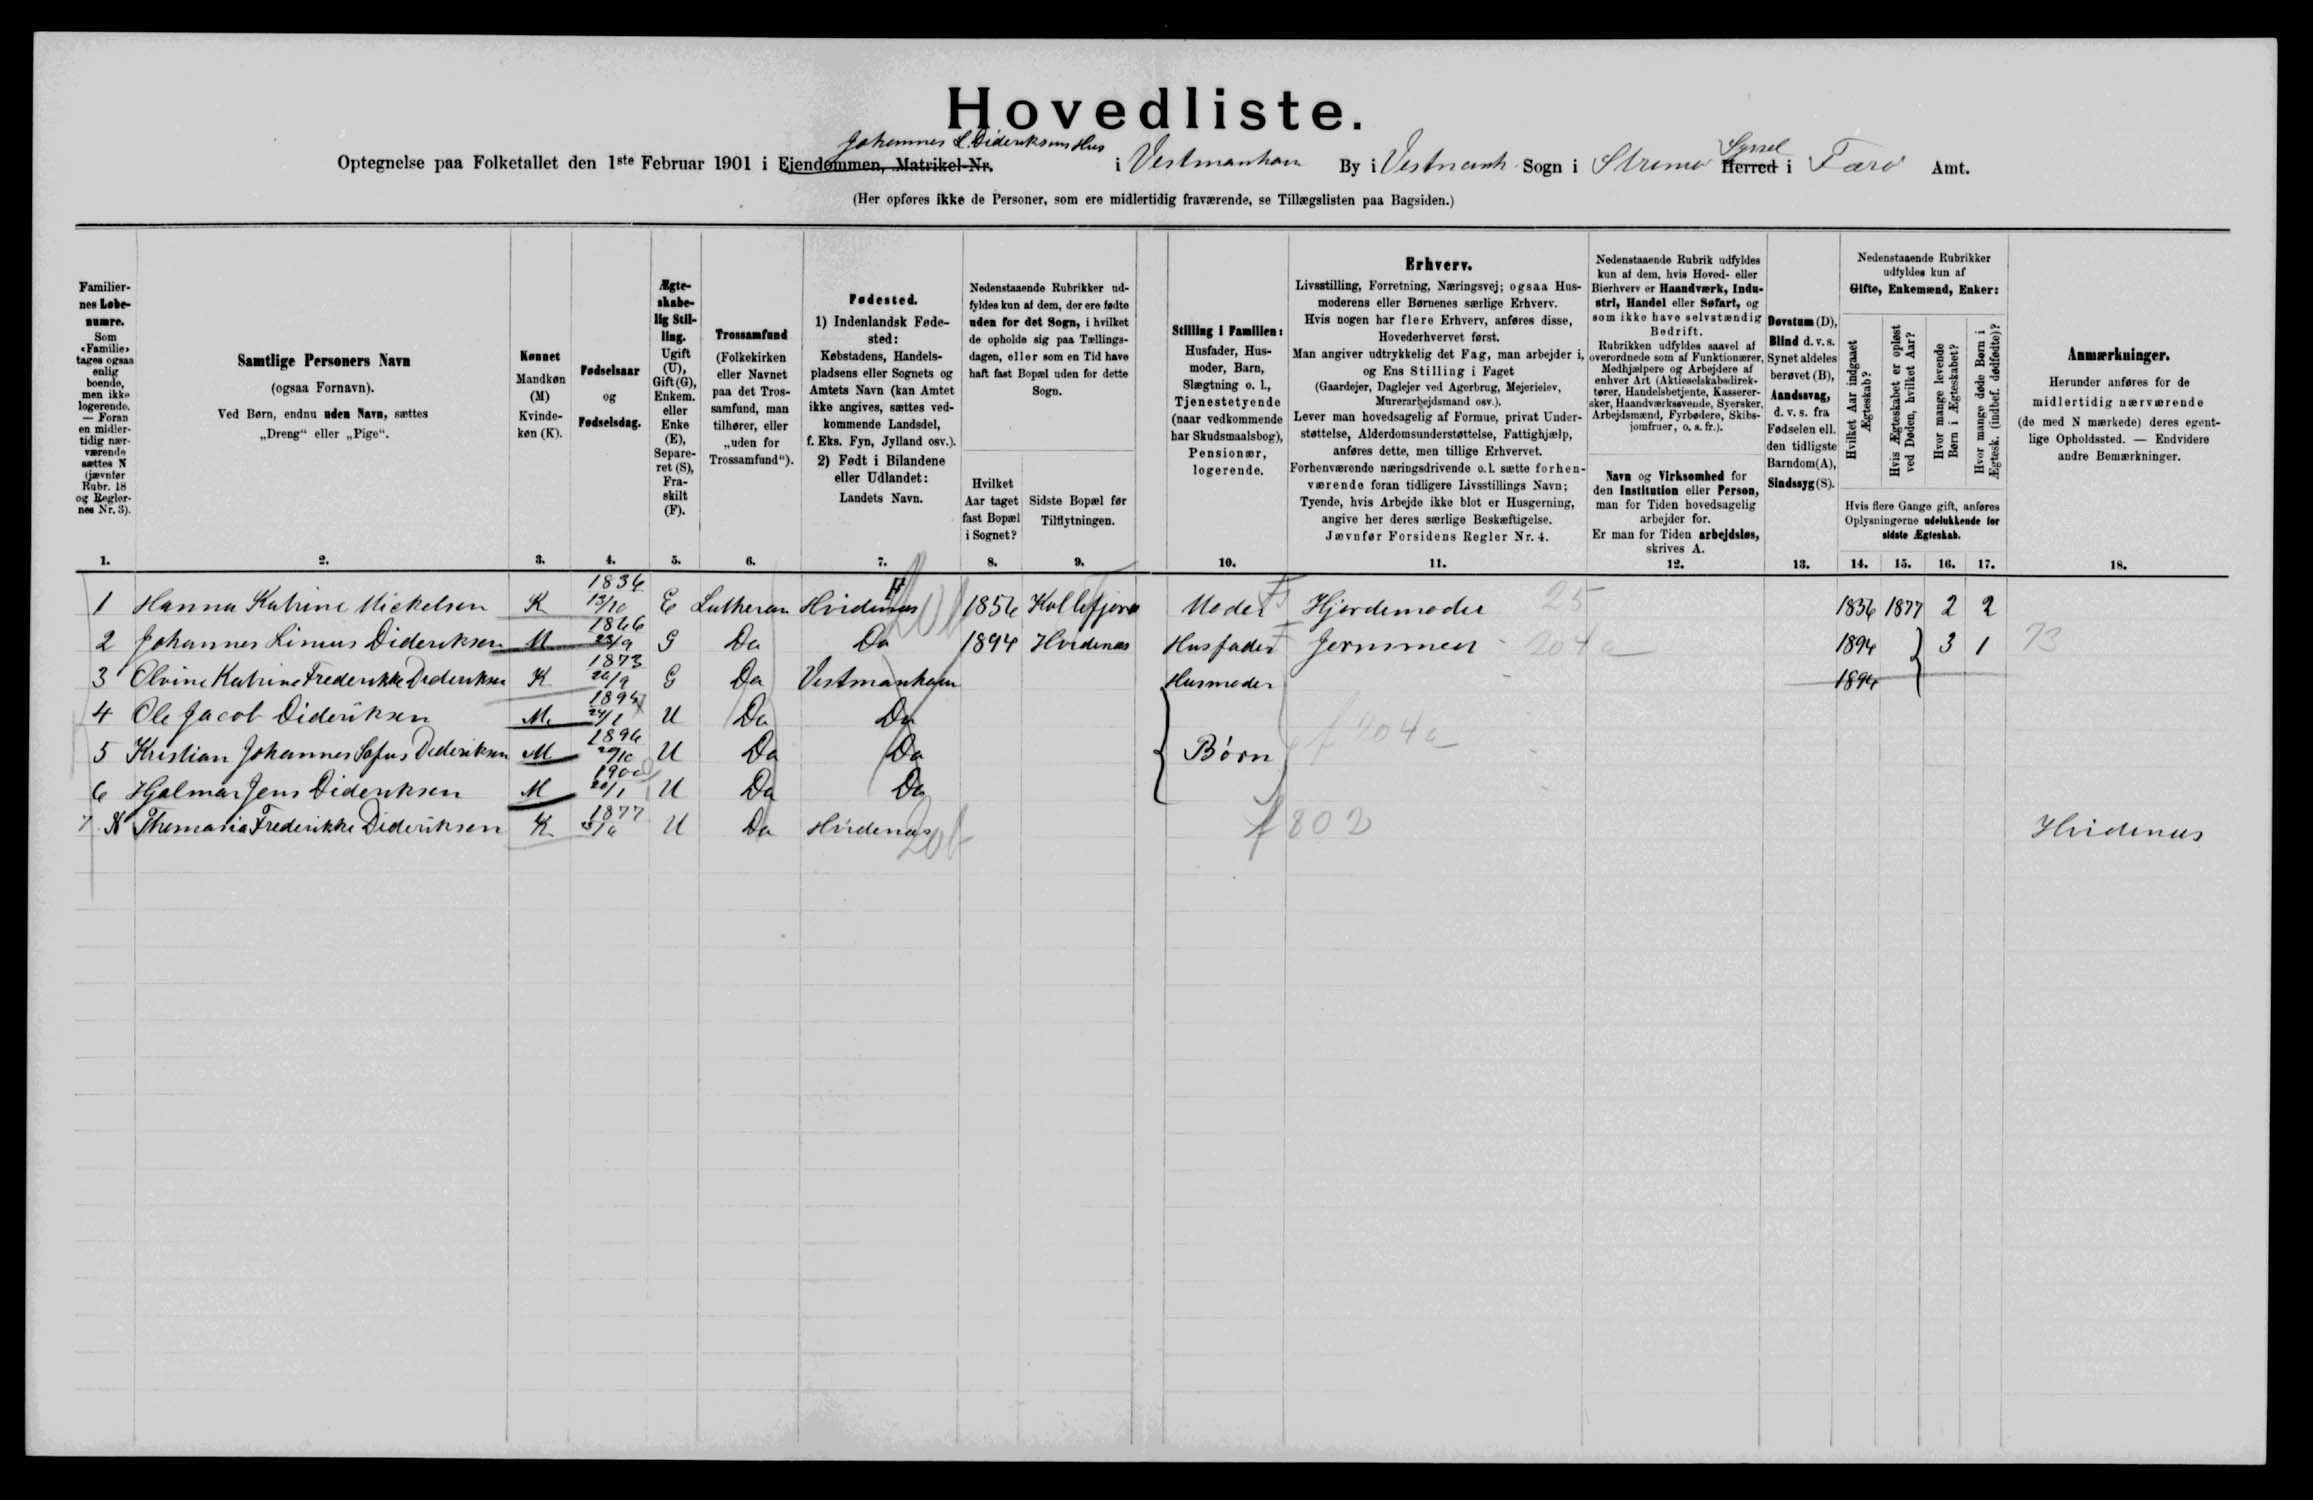 Hovedliste.
Johannes L. Dideriksens Hus
Optegnelse paa Folketallet den 1ste Februar 1901 i Ejendommen, Matrikel-Nr. i Vestmanhavn By i Vestmanh Sogn i Strømø Syssel Herred i Færø Amt.
(Her opføres ikke de Personer, som ere midlertidig fraværende, se Tillægslisten paa Bagsiden.)
Familiernes Løbenumre.
Som «Familie» tages ogsaa enlig boende, men ikke logerende. — Foran en midlertidig nærværende sættes N (jævnfør Rubr. 18 og Reglernes Nr. 3).
Samtlige Personers Navn
(ogsaa Fornavn).
Ved Børn, endnu uden Navn, sættes
„Dreng“ eller „Pige“.
Kønnet
Mandkøn (M)
Kvindekøn (K).
Fødselsaar
og
Fødselsdag.
Ægteskabelig Stilling.
Ugift (U), Gift (G), Enkem. eller Enke (E), Separeret (S), Fraskilt (F).
Trossamfund
(Folkekirken eller Navnet paa det Trossamfund, man tilhører, eller „uden for Trossamfund“).
Fødested.
1) Indenlandsk Fødested:
Købstadens, Handelspladsens eller Sognets og Amtets Navn (kan Amtet ikke angives, sættes vedkommende Landsdel, f. Eks. Fyn, Jylland osv.).
2) Født i Bilandene eller Udlandet:
Landets Navn.
Nedenstaaende Rubrikker udfyldes kun af dem, der ere fødte uden for det Sogn, i hvilket de opholde sig paa Tællingsdagen, eller som en Tid have haft fast Bopæl uden for dette Sogn.
Hvilket Aar taget fast Bopæl i Sognet?
Sidste Bopæl før Tilflytningen.
Stilling i Familien:
Husfader, Husmoder, Barn, Slægtning o. l., Tjenestetyende (naar vedkommende har Skudsmaalsbog), Pensionær, logerende.
Erhverv.
Livsstilling, Forretning, Næringsvej; ogsaa Husmoderens eller Børnenes særlige Erhverv.
Hvis nogen har flere Erhverv, anføres disse, Hovederhvervet først.
Man angiver udtrykkelig det Fag, man arbejder i, og Ens Stilling i Faget
(Gaardejer, Daglejer ved Agerbrug, Mejerielev, Murerarbejdsmand osv.).
Lever man hovedsagelig af Formue, privat Understøttelse, Alderdomsunderstøttelse, Fattighjælp, anføres dette, men tillige Erhvervet.
Forhenværende næringsdrivende o. l. sætte forhenværende foran tidligere Livsstillings Navn;
Tyende, hvis Arbejde ikke blot er Husgerning, angive her deres særlige Beskæftigelse.
Jævnfør Forsidens Regler Nr. 4.
Nedenstaaende Rubrik udfyldes kun af dem, hvis Hoved- eller Bierhverv er Haandværk, Industri, Handel eller Søfart, og som ikke have selvstændig Bedrift.
Rubrikken udfyldes saavel af overordnede som af Funktionærer, Medhjælpere og Arbejdere af enhver Art (Aktieselskabsdirektører, Handelsbetjente, Kassererrsker, Haandværkssvende, Syersker, Arbejdsmænd, Fyrbødere, Skibsjomfruer, o. s. fr.).
Navn og Virksomhed for den Institution eller Person, man for Tiden hovedsagelig arbejder for.
Er man for Tiden arbejdsløs, skrives A.
Døvstum (D), Blind d. v. s. Synet aldeles berøvet (B), Aandssvag, d. v. s. fra Fødselen ell. den tidligste Barndom (A), Sindssyg (S).
Nedenstaaende Rubrikker udfyldes kun af Gifte, Enkemænd, Enker:
Hvilket Aar indgaaet Ægteskab?
Hvis Ægteskabet er opløst ved Døden, hvilket Aar?
Hvor mange levende Børn i Ægteskabet?
Hvor mange døde Børn i Ægtesk. (indbef. dødfødte)?
Hvis flere Gange gift, anføres Oplysningerne udelukkende for sidste Ægteskab.
Anmærkninger.
Herunder anføres for de midlertidig nærværende (de med N mærkede) deres egentlige Opholdssted. — Endvidere andre Bemærkninger.
1. 2. 3. 4. 5. 6. 7. 8. 9. 10. 11. 12. 13. 14. 15. 16. 17. 18.
1 Hanna Katrine Mickelsen K 1836 13/10 E Lutheran Hvidenæs 1856 Kollefjord Moder Hjordemoder 25 1856 1877 2 2
2 Johannes Lineus Dideriksen M 1866 23/9 G Da Da 1894 Hvidenæs Husfader Jernsmed 204a 1894 3 1 73
3 Olvine Katrine Frederikke Dideriksen K 1873 26/9 G Da Vestmanhavn Husmoder 1894
4 Ole Jacob Dideriksen M 1895 24/1 U Da Da
5 Kristian Johannes Sofus Dideriksen M 1896 29/10 U Da Da Børn f 204a
6 Hjalmar Jens Dideriksen M 1900 20/1 U Da Da
7 N Thomasia Frederikke Dideriksen K 1877 5/6 U Da Hvidenæs 20b f 802 Hvidenæs